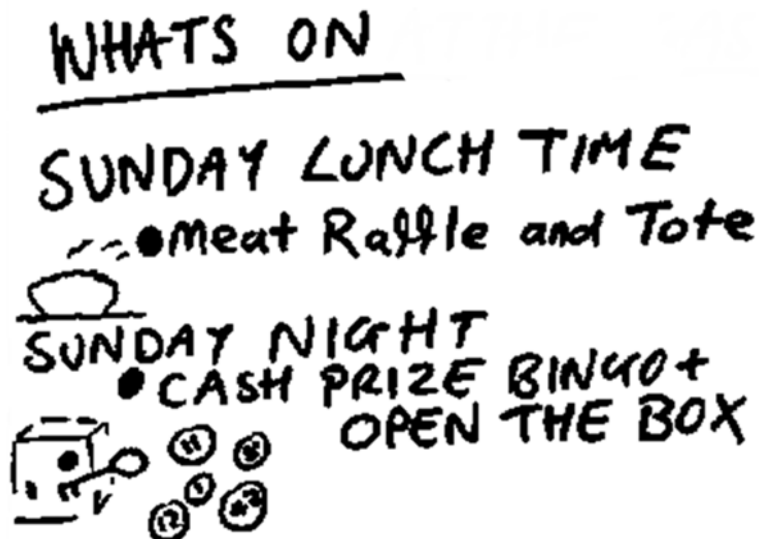 WHATS ON
SUNDAY LUNCH TIME
• Meat Raffle and Tote
SUNDAY NIGHT
• CASH PRIZE BINGO +
OPEN THE BOX
11
12